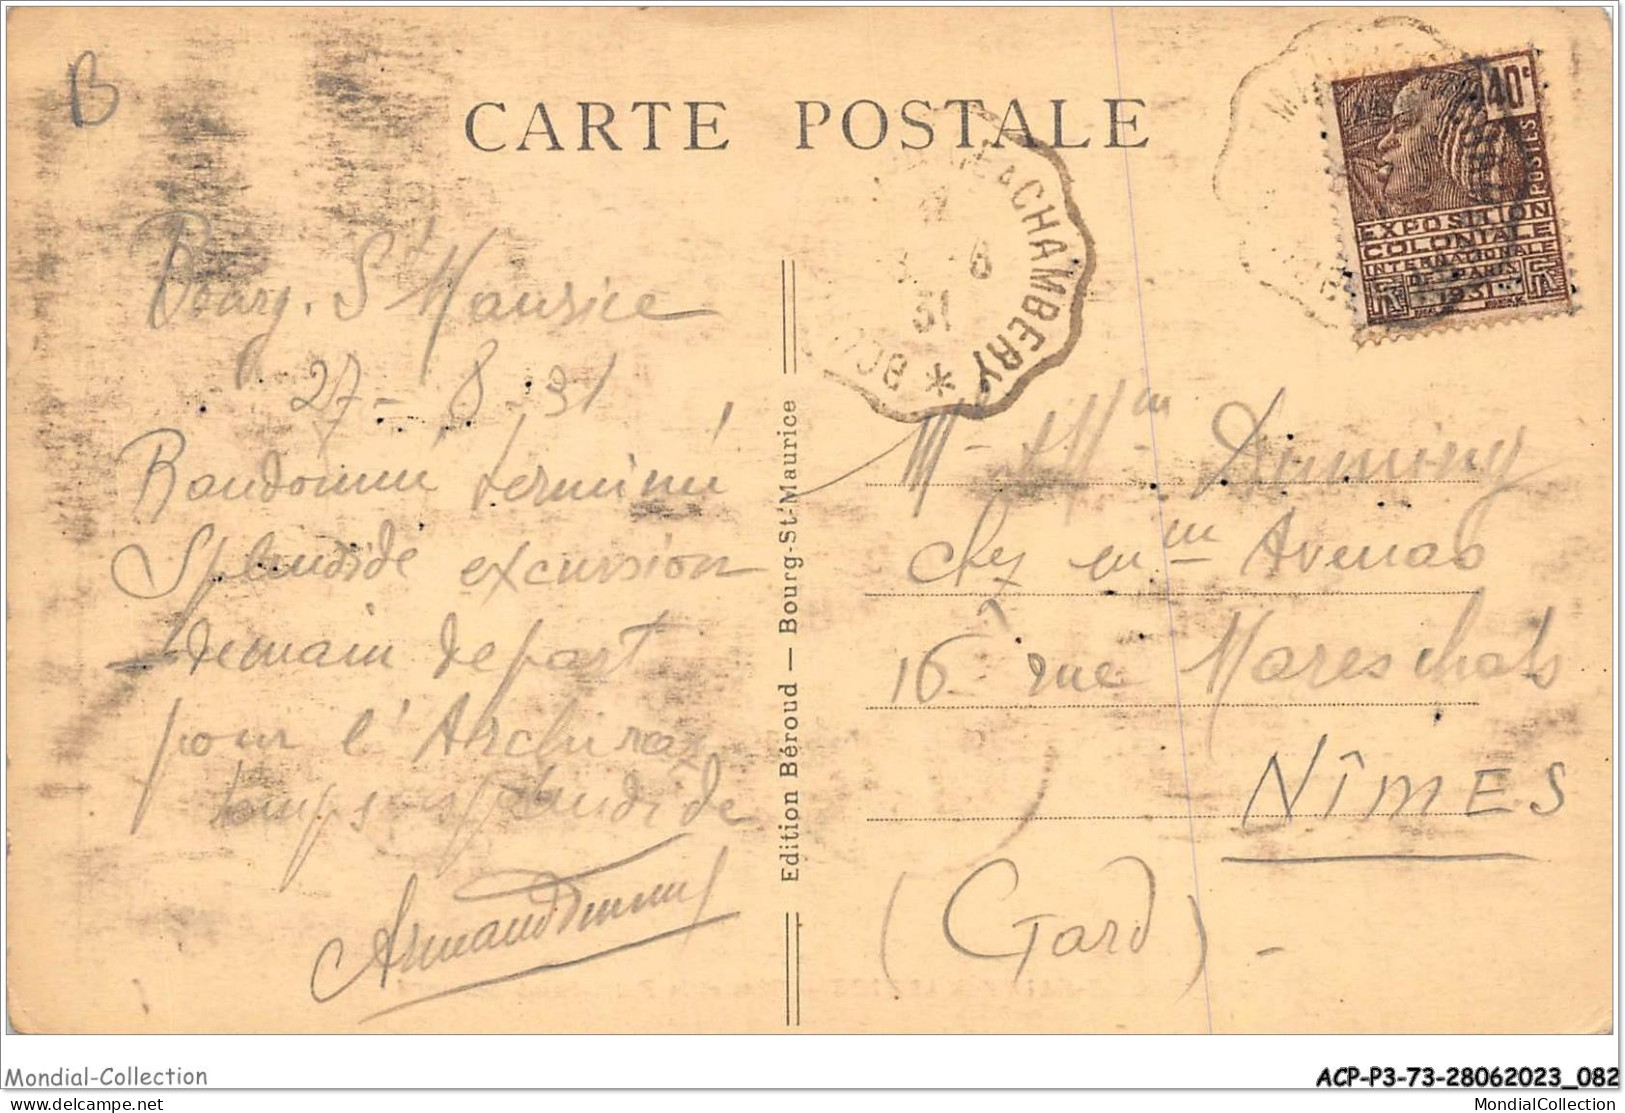 B
CARTE POSTALE
40c
POSTES
EXPOSITION
COLONIALE
INTERNATIONALE
DE PARIS
1931
& CHAMBERY * BOU
8
31
Bourg. St Maurice
27-8-31
Randonnée terminée
Splendide excursion
demain depart
pour l'
temps splendide
Armand
Edition Béroud — Bourg-St-Maurice
Mr & Mme
chez Mme Avenas
16 rue Mareschals
NîMES
(Gard) -
Mondial-Collection
ACP-P3-73-28062023_082
delcampe.net
MondialCollection